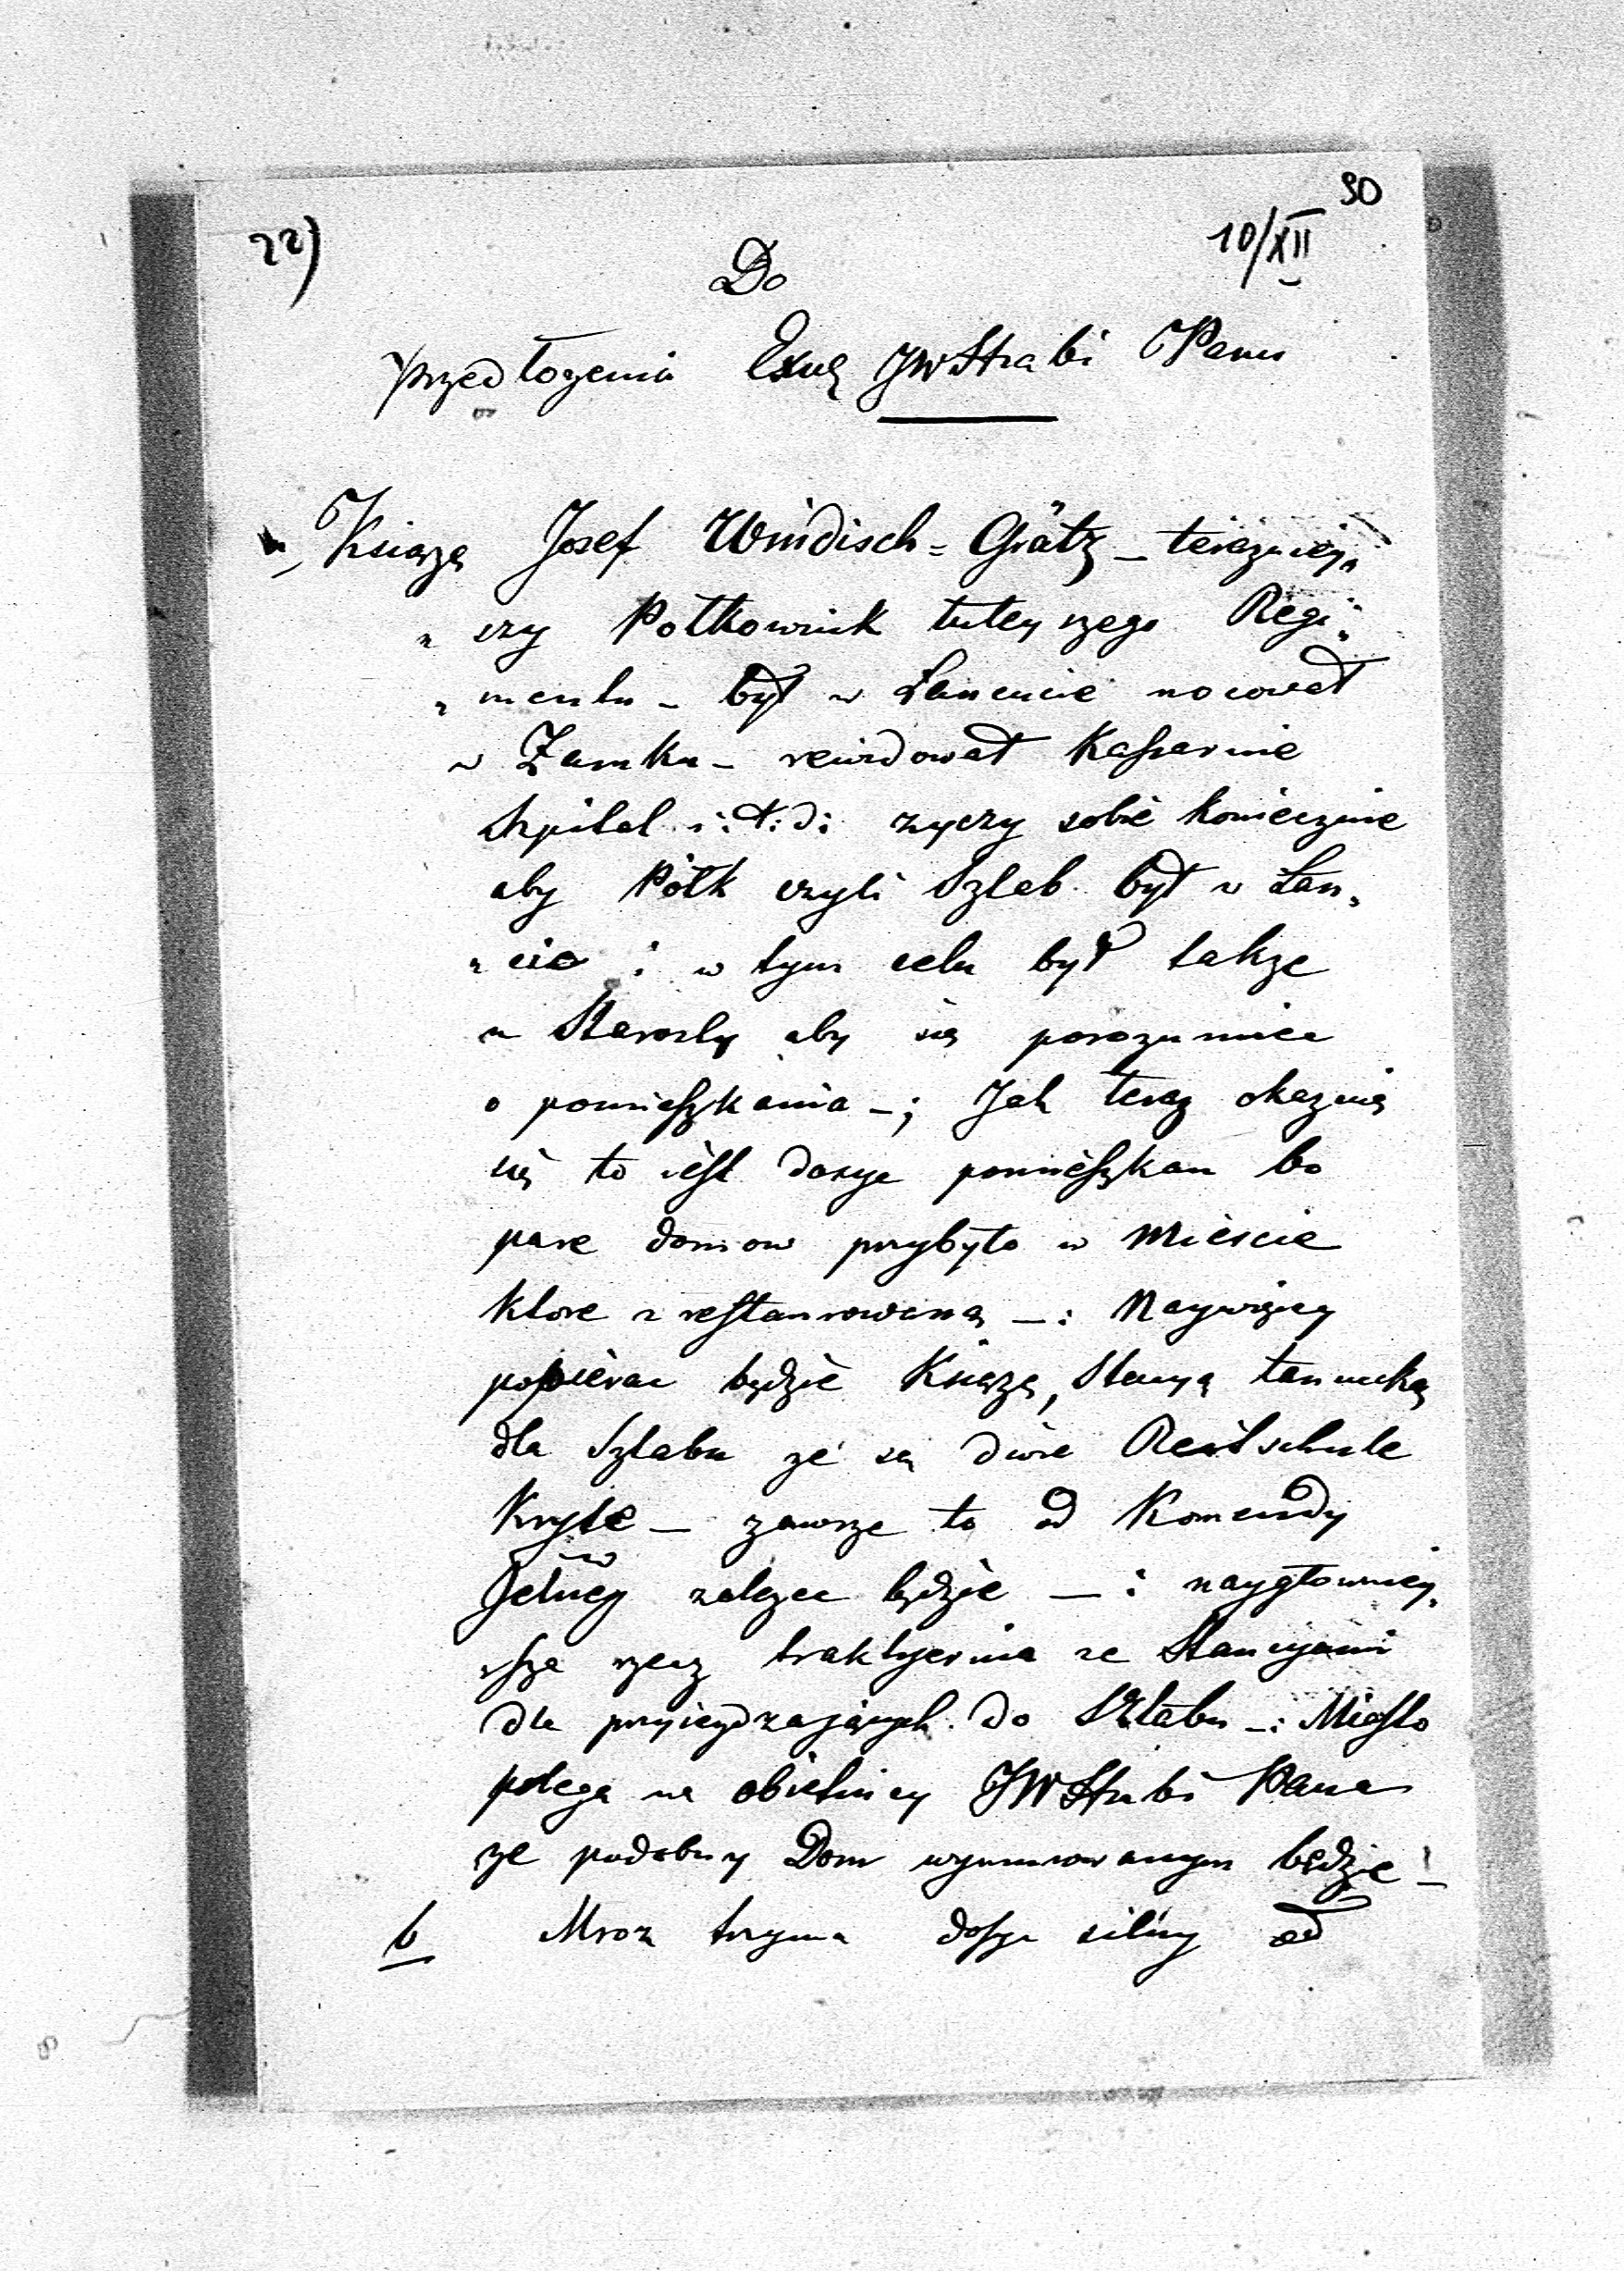 22)
90
10/XII
Do
przedłożenia Exılę JWHrabi Panu
a, Książę Josef Windisch=Grätz _ teraźniey„
„ szy Połkownik tuteyszego Regi„
„ mentu _ był w Łancucie nocował
w Zamku _ rewidował Kassarnie
szpital i: t: d: zyczy sobie koniecznie
aby Półk czyli Sztab był w Łan„
„cie i w tym celu był takze
u Starosty aby się porozumiec
o pomieszkania _; Jak teraz okazuię
się to iest dosyc pomieszkan bo
pare domow przybyło w Miescie
ktore zrestaurowaną _: Naywięcy
popierac będzie Książę, Stacyą łancucką
dla Sztabu ze są dwie Reitschule
Kryte _ zawsze to od Komendy
Jelney zalezec będzie _ : naygłowniey„
„sza rzecz traktyernia ze Stancyami
dla przyieydzających do Sztabu _: Miasto
polega na obietnicy JWHrabi Pana
ze podobny Dom wymurowanym będzie _
b Mroz trzyma dosyc silny od